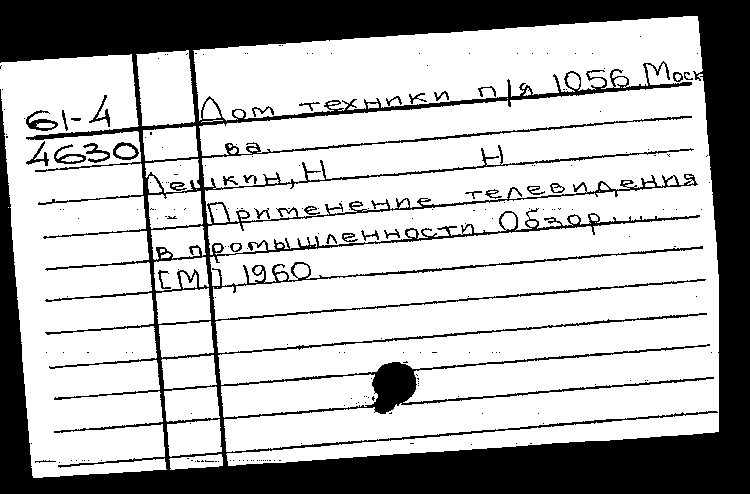 61-4 Дом техники п/я 1056 Моск
4630 ва.
Лешкин, Н Н
- Применение телевидения
в промышленности. Обзор....
[М.], 1960.